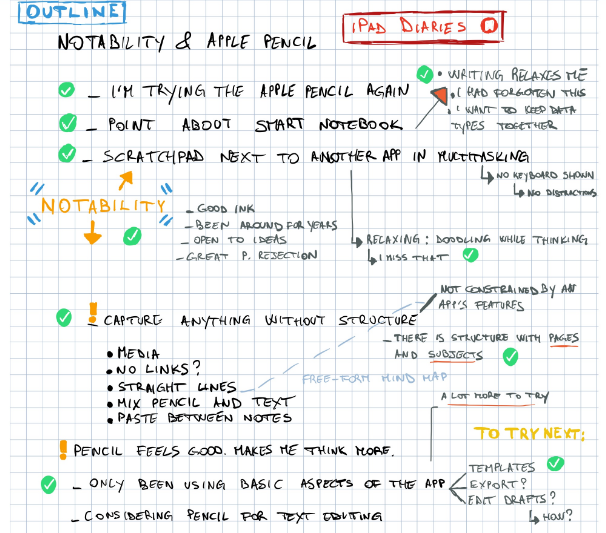 OUTLINE
iPAD DIARIES
NOTABILITY & APPLE PENCIL
- I'M TRYING THE APPLE PENCIL AGAIN
• WRITING RELAXES ME
• I HAD FORGOTTEN THIS
• I WANT TO KEEP DATA
TYPES TOGETHER
- POINT ABOUT SMART NOTEBOOK
- SCRATCHPAD NEXT TO ANOTHER APP IN MULTITASKING
NO KEYBOARD SHOWN
NO DISTRACTIONS
NOTABILITY
- GOOD INK
- BEEN AROUND FOR YEARS
- OPEN TO IDEAS
- GREAT P. REJECTION
RELAXING: DOODLING WHILE THINKING
I MISS THAT
! - CAPTURE ANYTHING WITHOUT STRUCTURE
NOT CONSTRAINED BY AN
APP'S FEATURES
- THERE IS STRUCTURE WITH PAGES
AND SUBJECTS
• MEDIA
• NO LINKS?
• STRAIGHT LINES
FREE-FORM MIND MAP
• MIX PENCIL AND TEXT
• PASTE BETWEEN NOTES
! PENCIL FEELS GOOD. MAKES ME THINK MORE.
A LOT MORE TO TRY
TO TRY NEXT:
- ONLY BEEN USING BASIC ASPECTS OF THE APP
TEMPLATES
EXPORT?
EDIT DRAFTS?
HOW?
- CONSIDERING PENCIL FOR TEXT EDITING